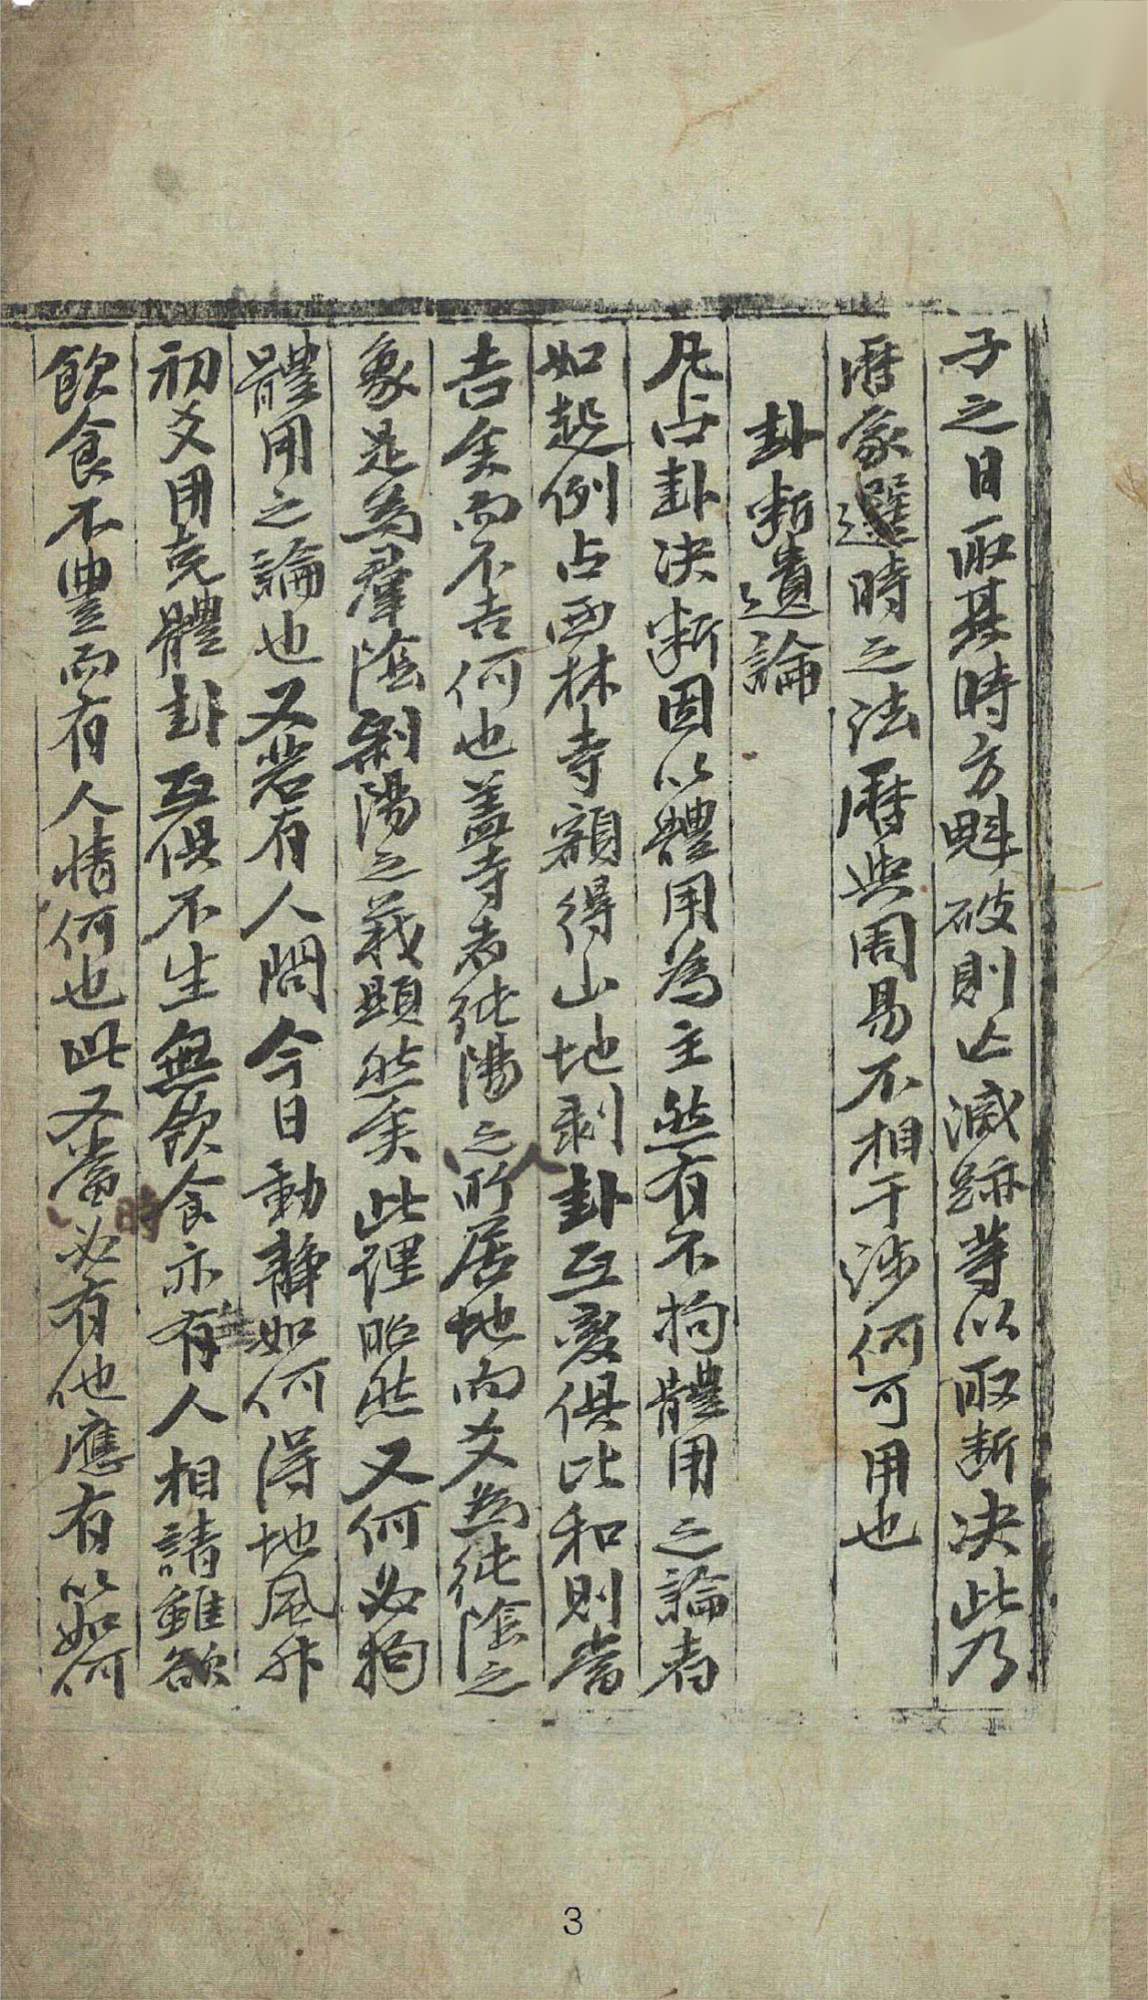 子之日取其時方魁破則亡滅跡等以取断决此乃
暦象選時之法暦與周易不相干渉何可用也
卦断遺論
凡占卦决断固以體用為主然有不拘體用之論者
如起例占西林寺額得山地剥卦互変俱比和則當
吉矣而不吉何也盖寺者純陽人之所居地而爻為純陰之
象是為羣陰剥陽之義顕然矣此理昭然又何必拘
體用之論也又若有人問今日動静如何得地風升
初爻用克體卦互俱不生無飲食亦有人相請雖欲
飲食不豊而有人情何也此又當時必有他應有以如何
3